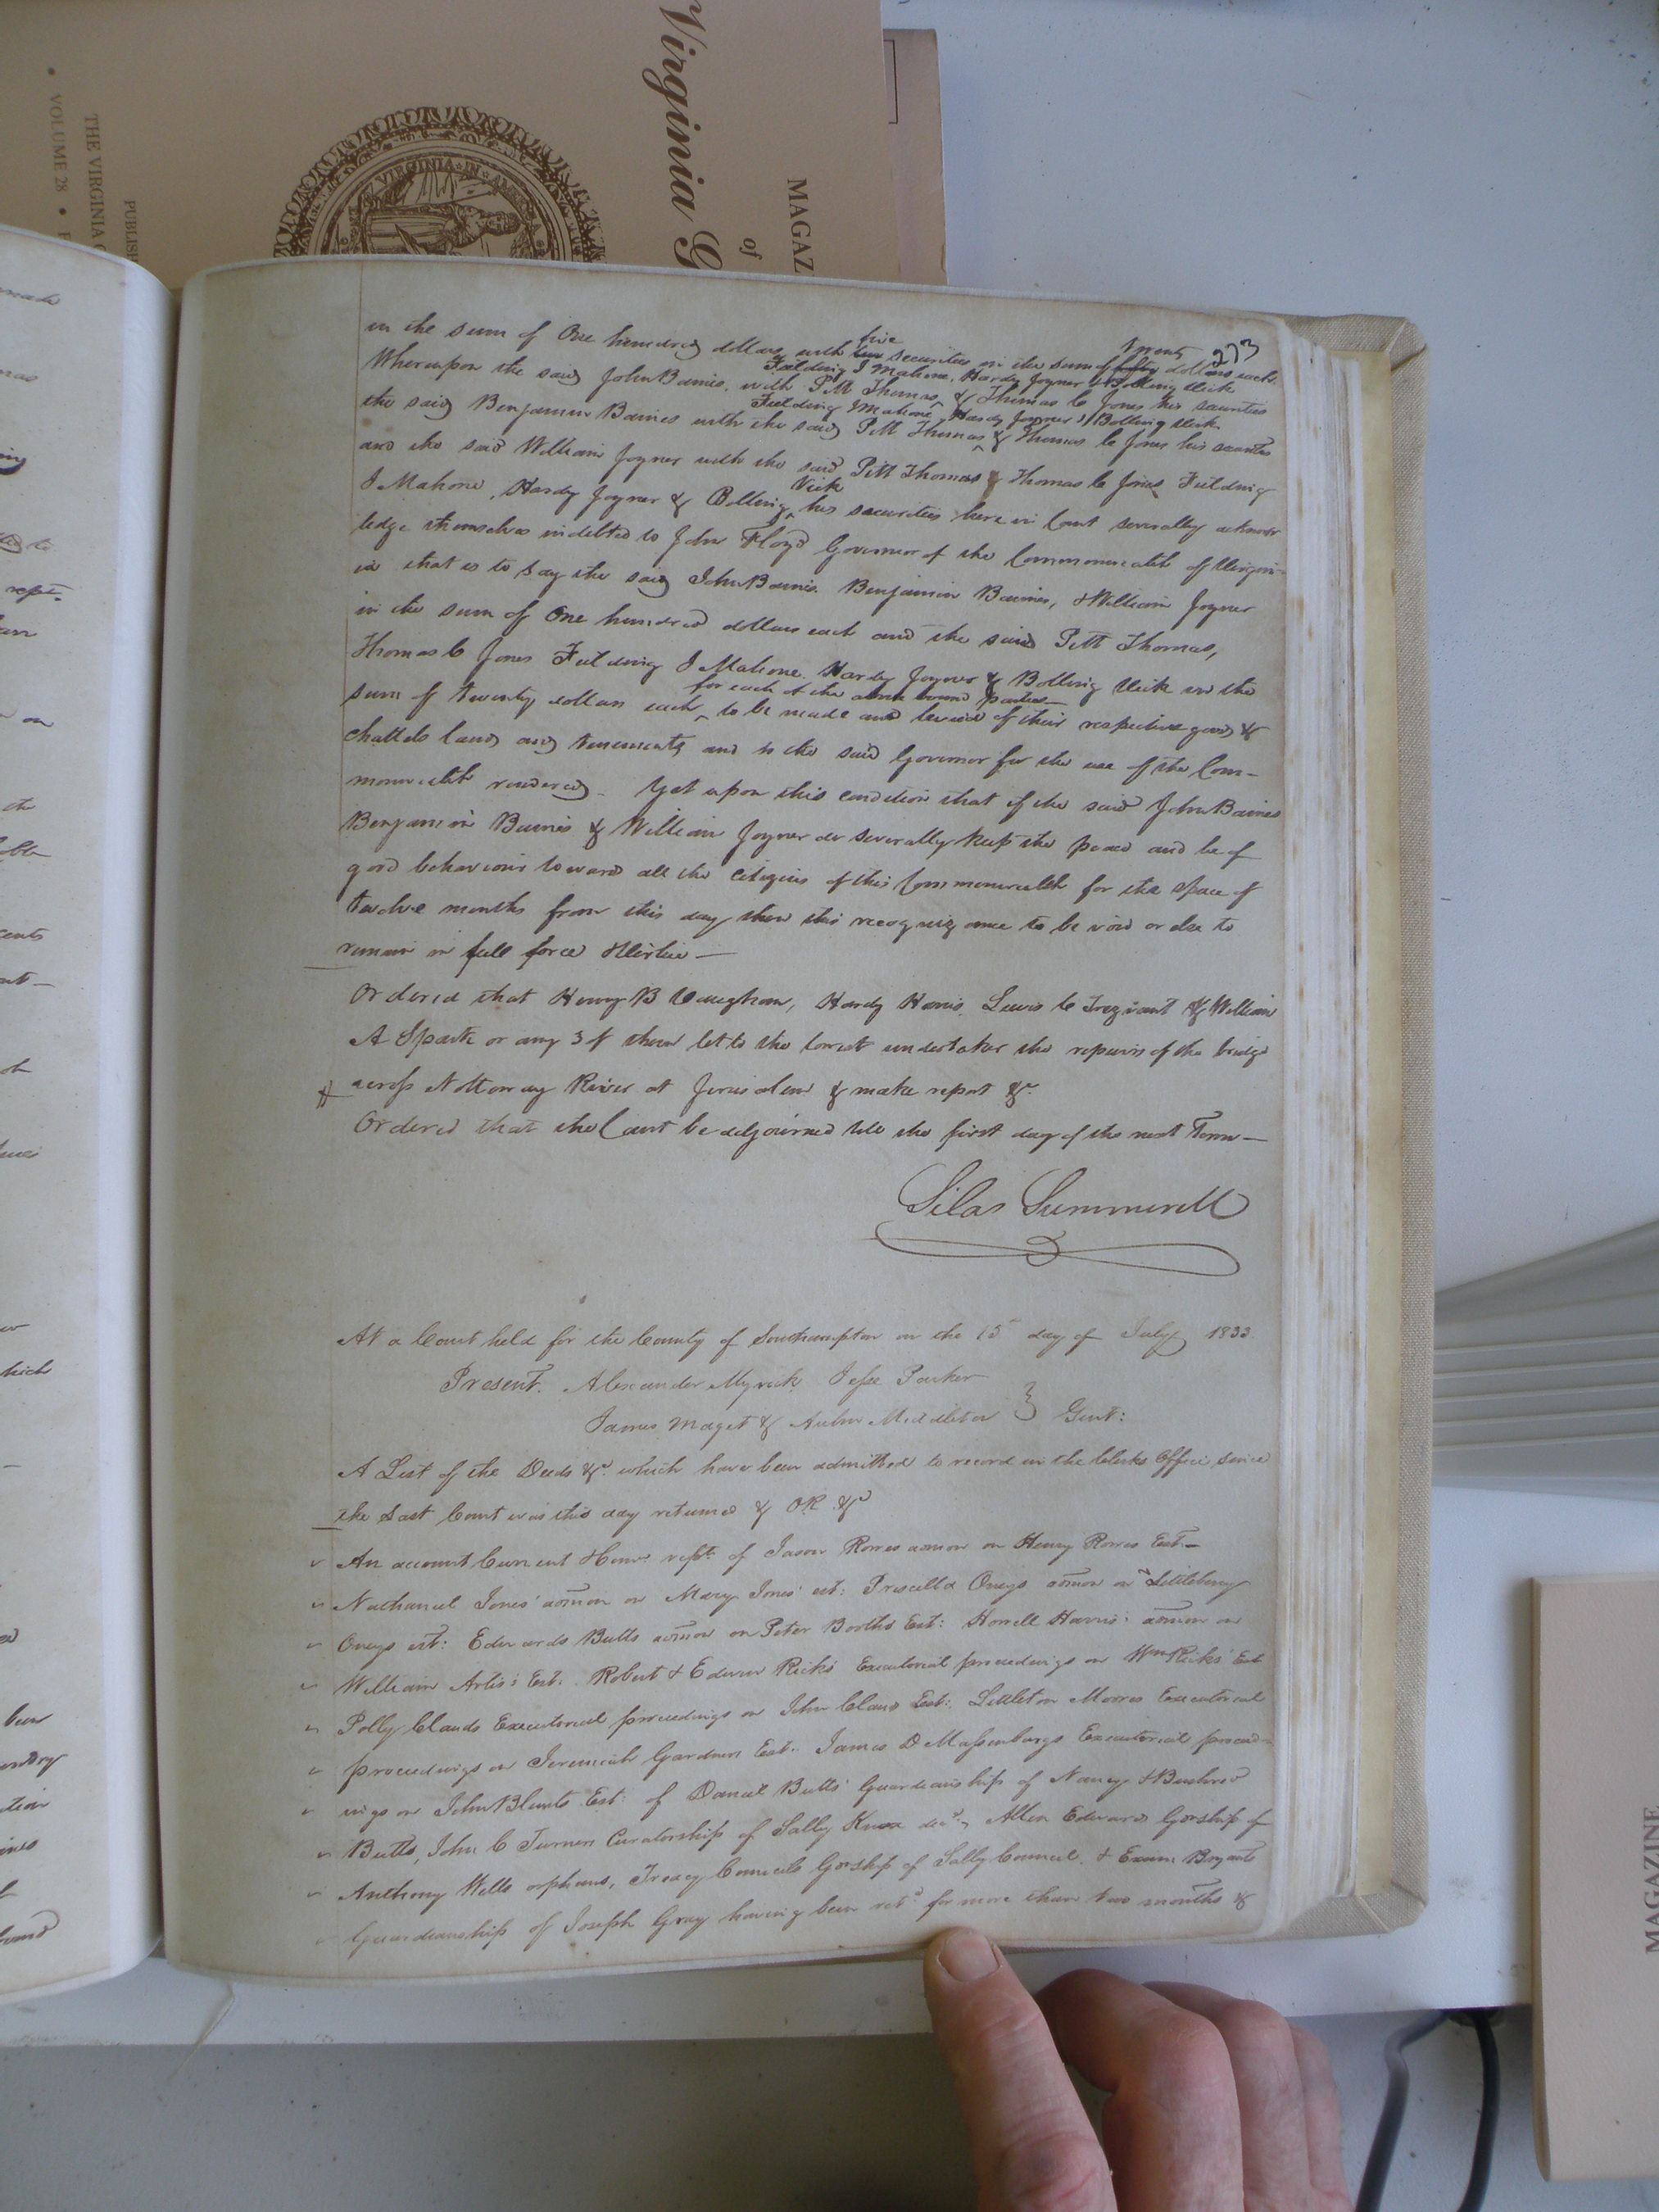 Virginia G
MAGAZ
of
PUBLISH
THE VIRGINIA G
• VOLUME 28 •
VIRGINIA IN
273
in the sum of One hundred dollars with five securities in the sum of twenty dollars each
Whereupon the said John Barnes, with Pitt Thomas, Fielding J Mahone, Hardy Joyner & Bolling Vick & Thomas C Jones his securities
the said Benjamin Barnes with the said Pitt Thomas Fielding Mahone, Hardy Joyner & Bolling Vick & Thomas C Jones his securities
and the said William Joyner with the said Pitt Thomas & Thomas C Jones Fielding
J Mahone, Hardy Joyner & Bolling Vick his securities here in Court severally acknow
ledge themselves indebted to John Floyd Governor of the Commonwealth of Virgin-
ia that is to say the said John Barnes. Benjamin Barnes, & William Joyner
in the sum of One hundred dollars each and the said Pitt Thomas,
Thomas C Jones Fielding J Mahone. Hardy Joyner & Bolling Vick in the
sum of twenty dollars each for each of the above bound parties to be made and levied of their respective goods &
chattels lands and tenements and to the said Governor for the use of the Com-
monwealth rendered - Yet upon this condition that if the said John Barnes
Benjamin Barnes & William Joyner do severally keep the peace and be of
good behaviour toward all the citizens of this Commonwealth for the space of
twelve months from this day then this recognizance to be void or else to
remain in full force & Virtue —
Ordered that Henry B Vaughan, Hardy Harris, Lewis C Trezvant & William
A Spark or any 3 of them let to the lowest undertaker the repairs of the bridge
across Nottoway River at Jerusalem & make report &c
Ordered that the Court be adjourned till the first day of the next Term —
Silas Summerell
At a Court held for the County of Southampton on the 15th day of July 1833
Present. Alexander Myrick, Jesse Parker
James Maget & Middleton } Gent:
A List of the Deeds &c. which have been admitted to record in the Clerks Office since
the Last Court was this day returned & OR &c
An account Current & rept. of Jason admon on Henry Est. —
Nathaniel Jones' admon on Mary Jones' est: Priscilla Oneys admon on Littleberry
Oneys est: Edwards Butts admon on Peter Booths Est: Howell Harris' admon on
William Artis's Est. Robert & Edwin Ricks' Executorial proceedings on Wm Ricks' Est
Polly Clauds Executorial proceedings on John Clauds Est: Littleton Moores Executorial
proceedings on Jeremiah Gardners Est. James D Massenburgs Executorial proceed-
ings on John Blunts Est: of Daniel Butts' Guardianship of Nancy &
Butts, John C Turners Curatorship of Sally Knox decd, Allen Edwards Gdnship of
Anthony Wells orphans, Treacy Councils Gdnship of Sally Council, & Exum Bryants
Guardianship of Joseph Gray having been retd for more than two months &
MAGAZINE